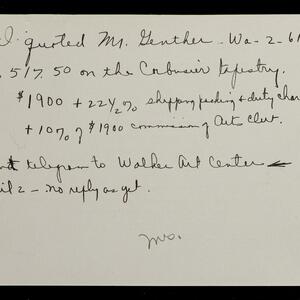 I quoted Mr. Genther - Wa-2-61
517.50 on the Corbusier tapestry.
$1900 + 22 1/2 % shipping packing & duty char
+ 10% of $1900 commission of Arts Club.
telegram to Walker Art Center
il 2 - no reply as yet.